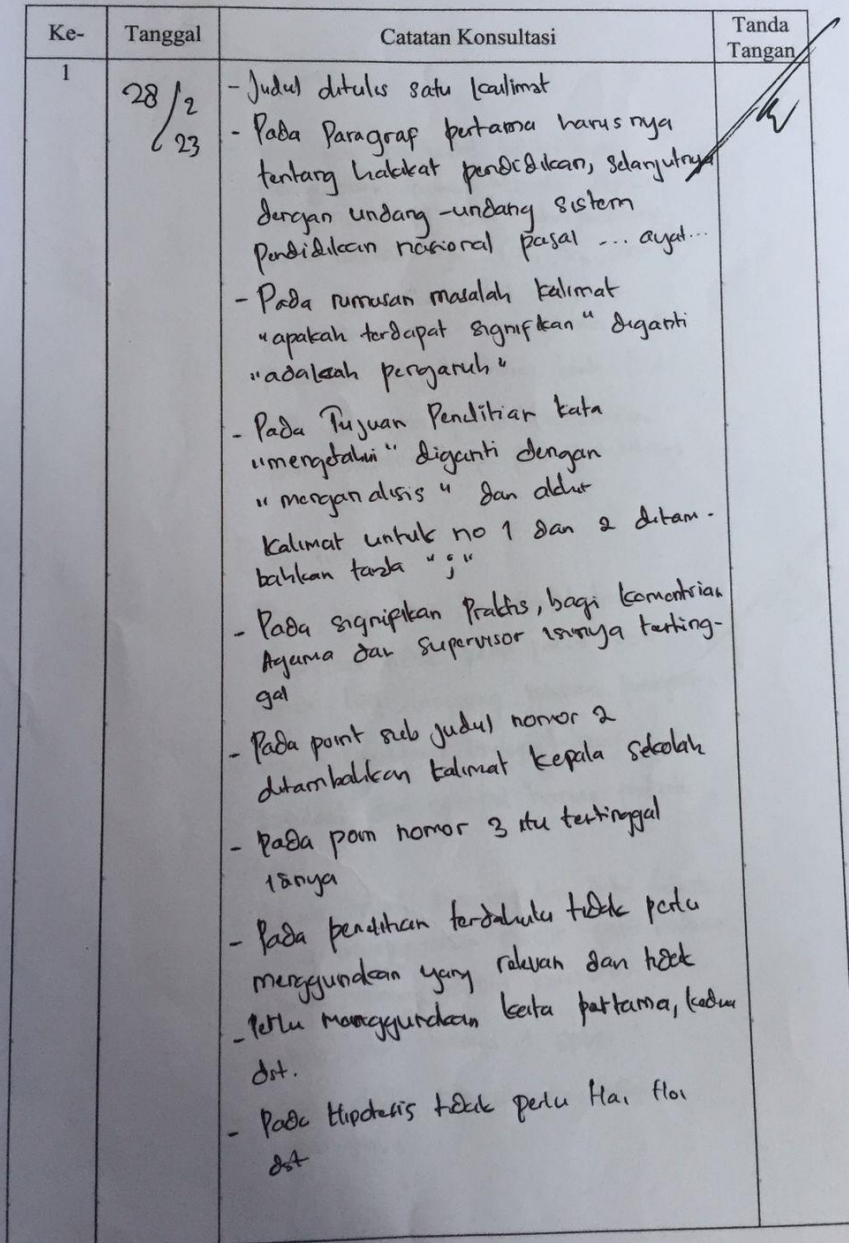 Ke-
Tanggal
Catatan Konsultasi
Tanda
Tangan
1
28/2
23
- Judul ditulis satu kalimat
- Pada Paragraf pertama harusnya
tentang hakikat pendidikan, selanjutnya
dengan undang-undang sistem
pendidikan nasional pasal ... ayat...
- Pada rumusan masalah kalimat
"apakah terdapat signifikan" diganti
"adakah pengaruh"
- Pada Tujuan Penelitian kata
"mengetahui" diganti dengan
"menganalisis" dan akhir
kalimat untuk no 1 dan 2 ditam-
bahkan tanda ";"
- Pada signifikan Praktis, bagi kementrian
Agama dan supervisor isinya terting-
gal
- Pada point sub judul nomor 2
ditambahkan kalimat kepala sekolah
- pada poin nomor 3 itu tertinggal
isinya
- Pada penelitian terdahulu tidak perlu
menggunakan yang relevan dan tidak
- Perlu menggunakan kata pertama, kedua
dst.
- Pada Hipotesis tidak perlu Ha1 Ho1
dst